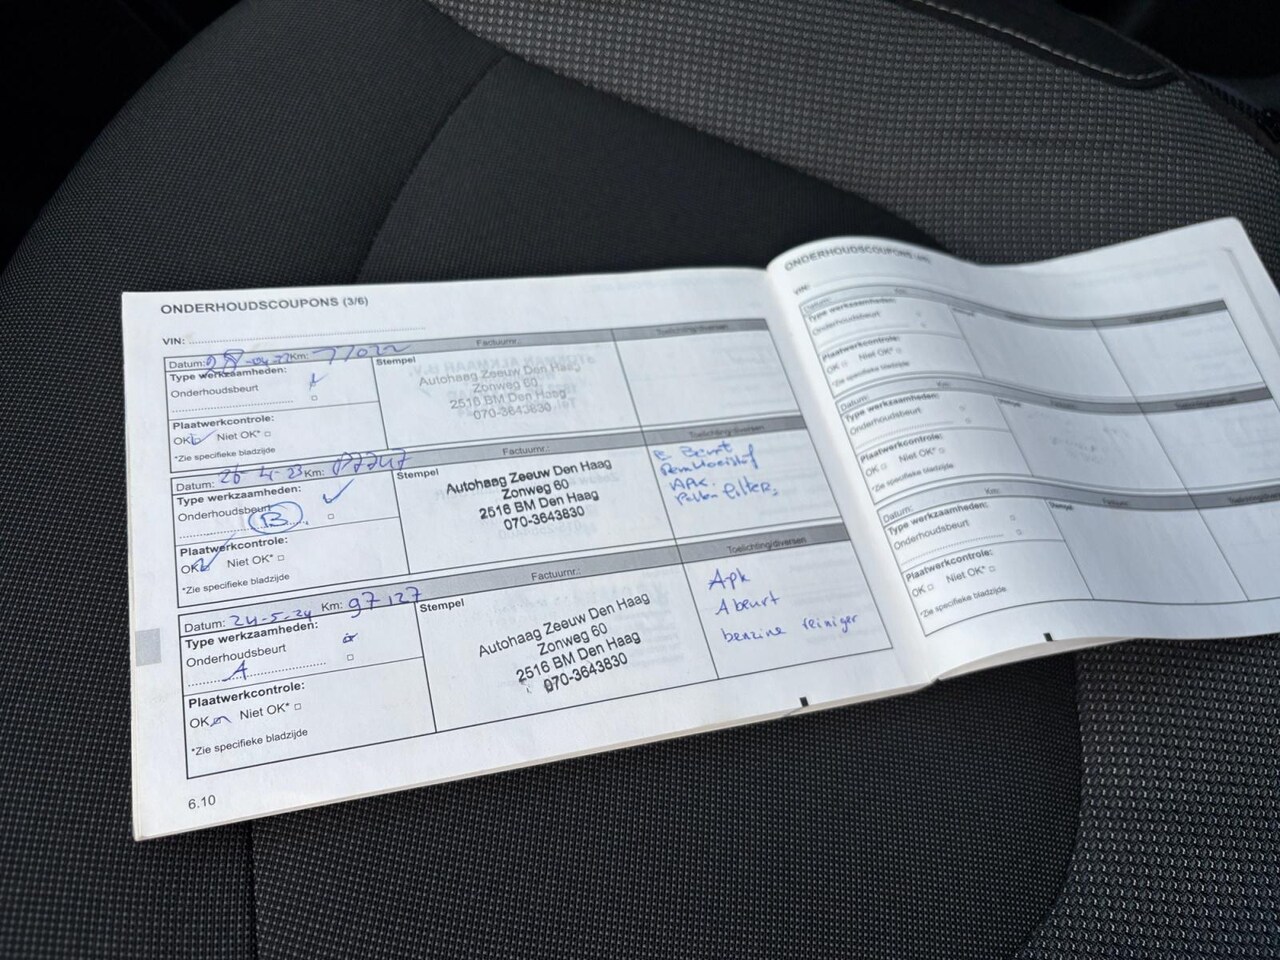 ONDERHOUDSCOUPONS (3/6)
VIN:
Datum: 28-04-22 Km: 77022 Factuurnr.: Toelichting/diversen
Type werkzaamheden:
Stempel
Onderhoudsbeurt
Autohaag Zeeuw Den Haag
Zonweg 60
2516 BM Den Haag
070-3643830
Plaatwerkcontrole:
OK Niet OK*
*Zie specifieke bladzijde
Datum: 26-4-23 Km: Factuurnr.: Toelichting/diversen
Type werkzaamheden:
Stempel
Onderhoudsbeurt
B
Autohaag Zeeuw Den Haag
Zonweg 60
2516 BM Den Haag
070-3643830
B Beurt
Remvloeistof
APK.
Pollen filter.
Plaatwerkcontrole:
OK Niet OK*
*Zie specifieke bladzijde
Datum: 24-5-24 Km: 97127 Factuurnr.: Toelichting/diversen
Type werkzaamheden:
Stempel
Onderhoudsbeurt
A
Autohaag Zeeuw Den Haag
Zonweg 60
2516 BM Den Haag
070-3643830
Apk
A beurt
benzine reiniger
Plaatwerkcontrole:
OK Niet OK*
*Zie specifieke bladzijde
6.10
ONDERHOUDSCOUPONS
VIN:
Datum: Km:
Type werkzaamheden:
Onderhoudsbeurt
Plaatwerkcontrole:
OK Niet OK*
*Zie specifieke bladzijde
Datum: Km:
Type werkzaamheden:
Onderhoudsbeurt
Plaatwerkcontrole:
OK Niet OK*
*Zie specifieke bladzijde
Datum: Km:
Type werkzaamheden:
Stempel
Onderhoudsbeurt
Plaatwerkcontrole:
OK Niet OK*
*Zie specifieke bladzijde